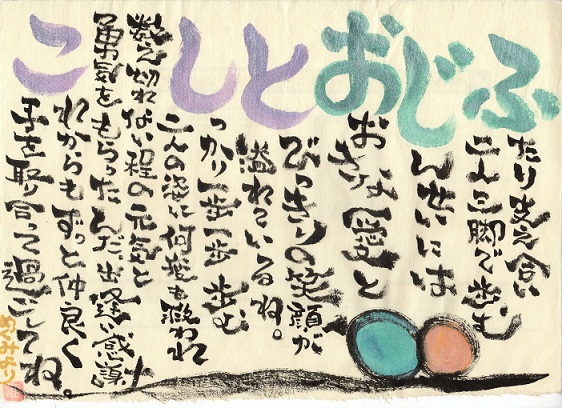 ふじおとしこ
たり支え合い
二人三脚で歩む
ん生には
おきな愛と
びっきりの笑顔が
溢れているね。
っかり一歩一歩 歩む
二人の姿に何度も救われ
数え切れない程の元気と
勇気をもらったんだ。出逢い感謝!
れからもずっと仲良く
手を取り合って過ごしてね。
めぐみより